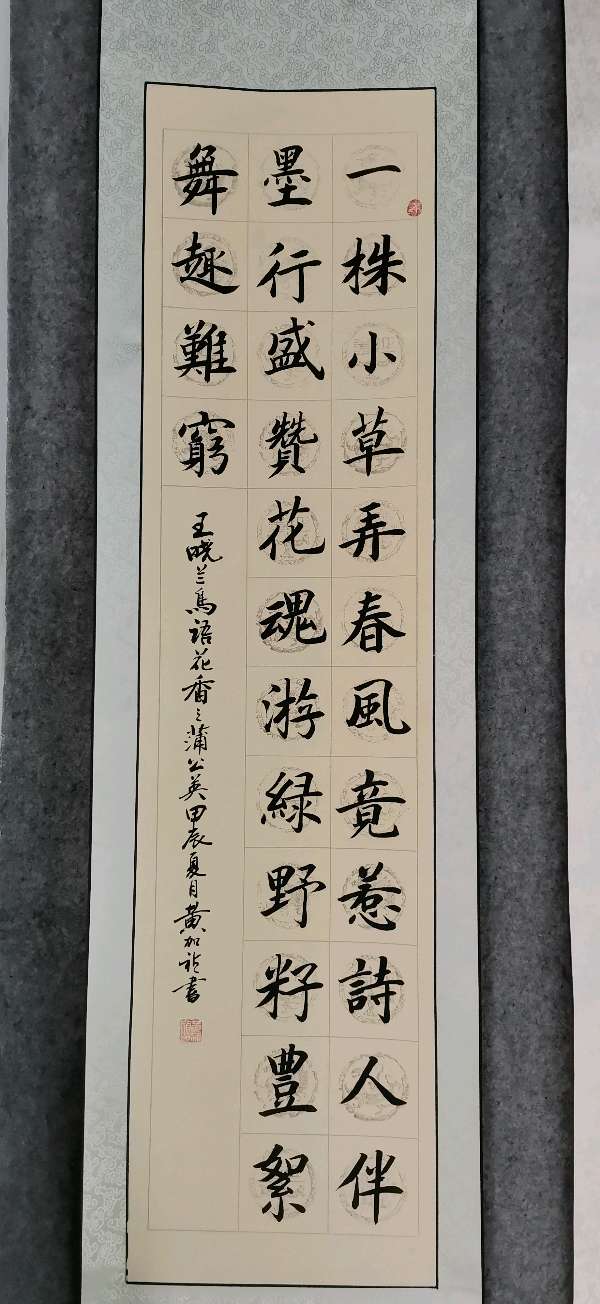 一株小草弄春風竟惹詩人伴
墨行盛贊花魂游綠野籽豐絮
舞趣難窮
王晓兰鸟语花香之蒲公英甲辰夏月黄加祚書